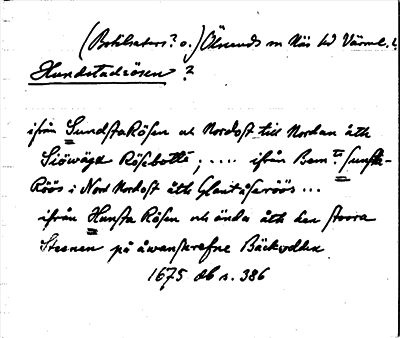 (Botilsäters? o.) Ölseruds sn Näs hd Värml.
Hundstadrösen ?
ifrån Sundsta Rösen och Nordost till Nordan åth
Siöwägk Rösebotte; .... ifrån Bem:te Sunsta-
Röös i Nord Nordost åth Glasåseröös ...
ifrån Hunsta Rösen och ända åth den stoora
Steenen på åwanskrefne Bäckvallen
1675 db s. 386